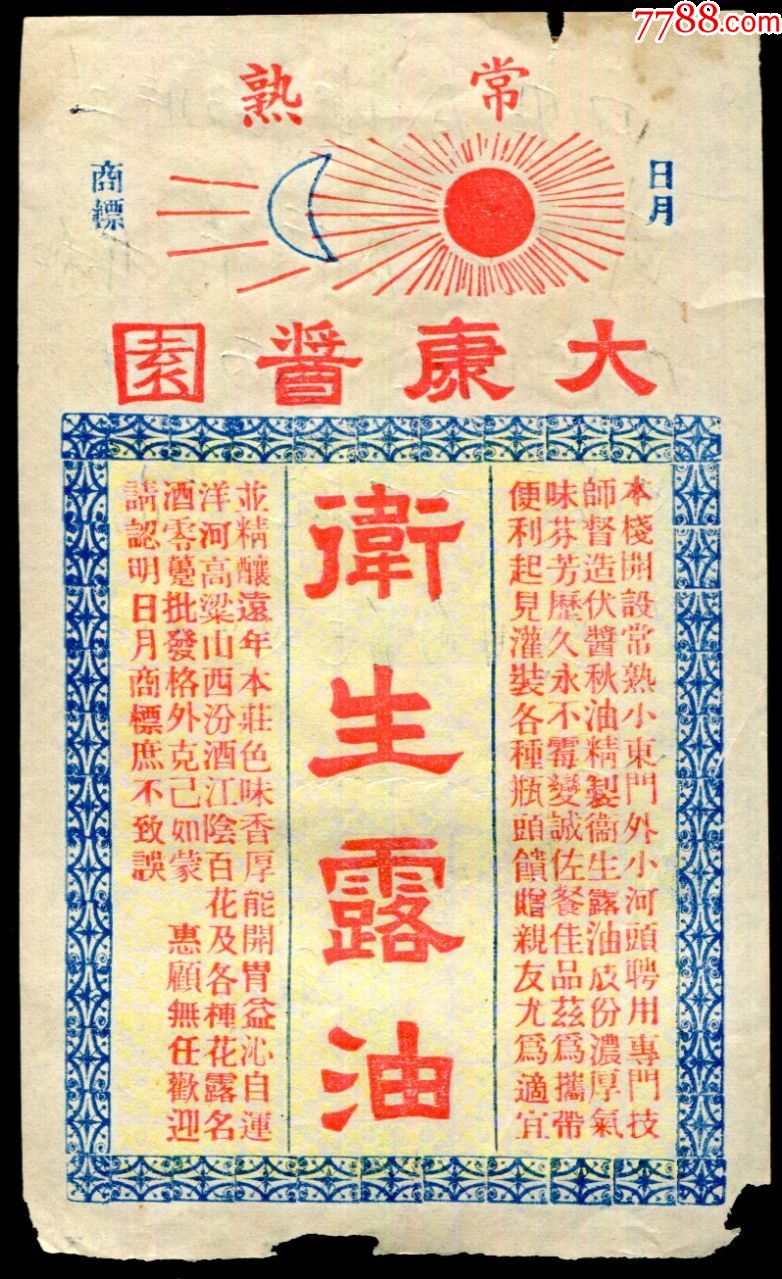 7788.com
常熟
日月
商標
大康醬園
本棧開設常熟小東門外小河頭聘用專門技
師督造伏醬秋油精製衛生露油成份濃厚氣
味芬芳歷久永不霉變誠佐餐佳品茲爲攜帶
便利起見灌裝各種瓶頭饋贈親友尤爲適宜
衛生露油
並精釀遠年本莊色味香厚能開胃益沁自運
洋河高粱山西汾酒江陰百花及各種花露名
酒零躉批發格外克己如蒙 惠顧無任歡迎
請認明日月商標庶不致誤